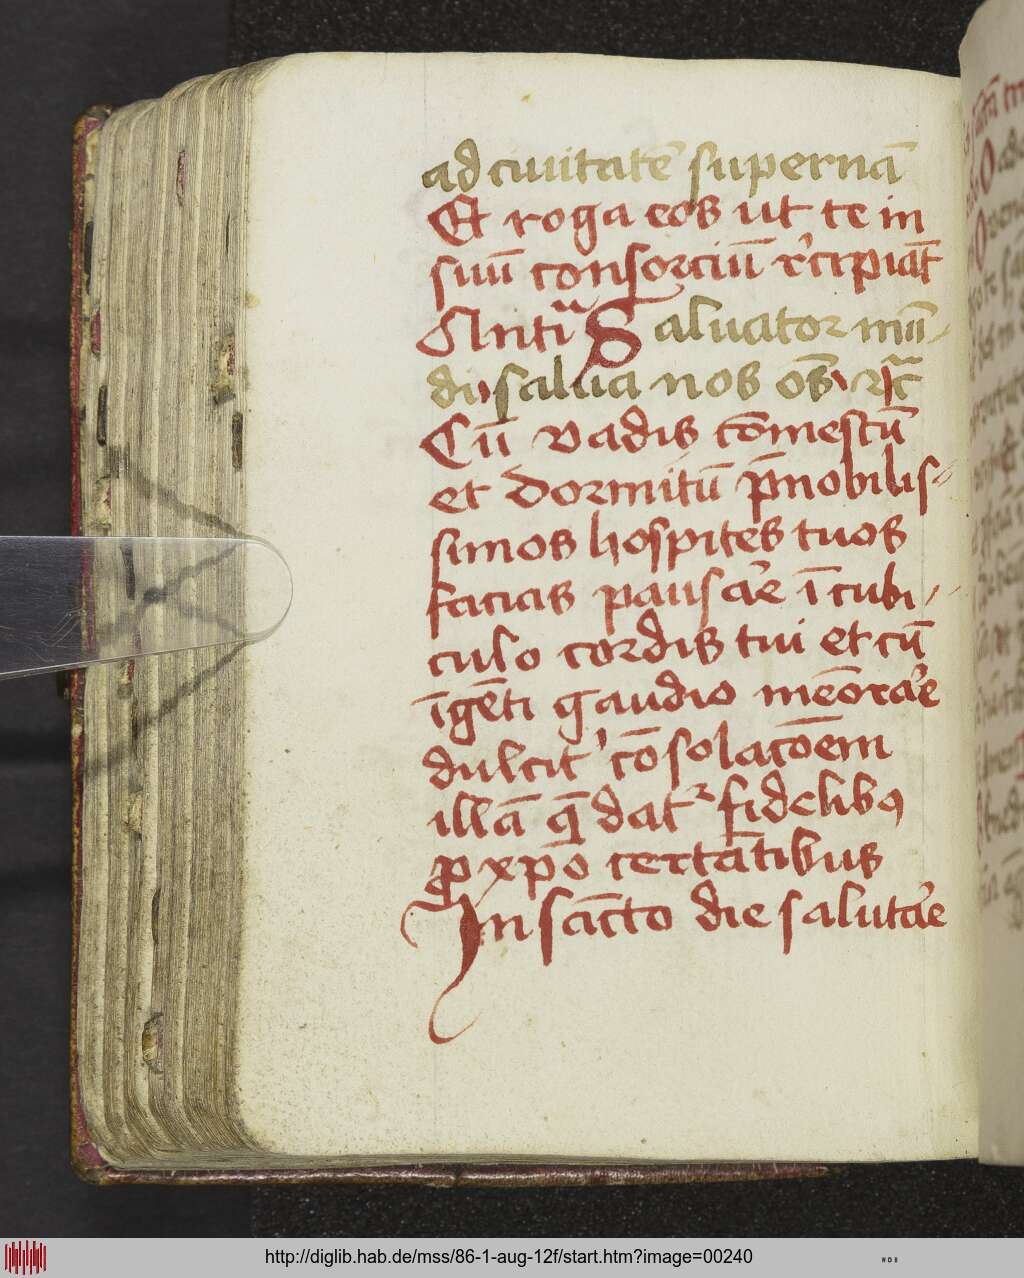 ad ciuitatē supernā
Et roga eos ut te in
suū consorciū r̓cipiāt
Antiᵃ Saluator mū-
di salua nos oēs rc̄
Cū vadis cōmestū
et dormitū p̄nobilis-
simos hospites tuos
facias pausar̓e ī cubi-
culo cordis tui et cū
īgēti gaudio mēorar̓e
dulcit̓ cōsolac̄oem
illā q̄ dat᷑ fidelibꝰ
ꝓ xp̄o certātibus
In sācto die salutar̓e
http://diglib.hab.de/mss/86-1-aug-12f/start.htm?image=00240